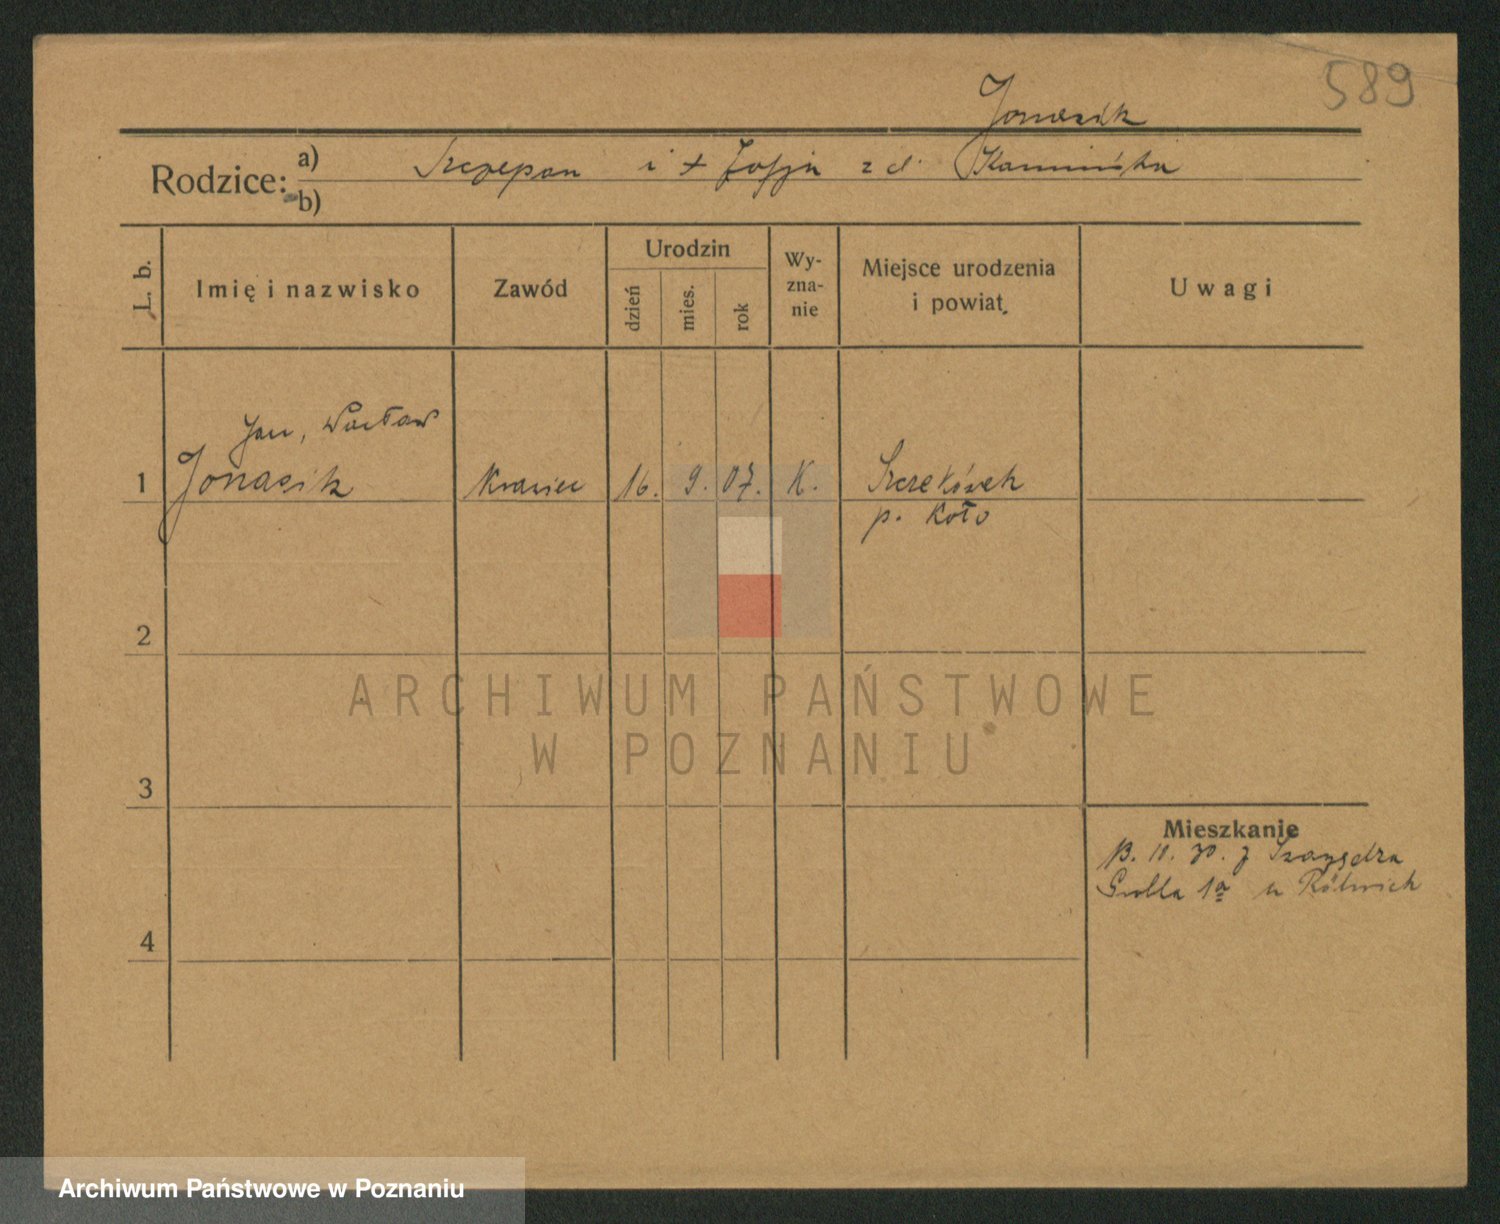 589
Jonasik
Rodzice: a) Szczepan i + Zofja z d. Kamińska
b)
L. b. Imię i nazwisko Zawód Urodzin dzień mies. rok Wyznanie Miejsce urodzenia i powiat. Uwagi
Jan, Wacław
1 Jonasik Krawiec 16. 9. 07. K.
p. Koło
2
ARCHIWUM PAŃSTWOWE
W POZNANIU
3
Mieszkanie
10. 30. z
1a u
4
Archiwum Państwowe w Poznaniu